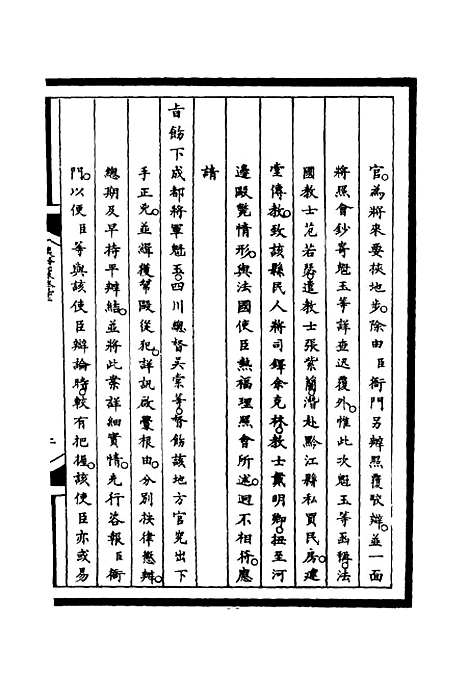 官。為將來要挾地步。除由臣衙門另辦照覆駮辯。並一面
將照會鈔寄魁玉等詳查迅覆外。惟此次魁玉等函稱。法
國教士范若瑟。遣教士張紫蘭潛赴黔江縣私買民房。建
堂傳教。致該縣民人將司鐸余克林。教士戴明卿。扭至河
邊毆斃情形。與法國使臣熱福理照會所述。迥不相符。應
請
旨飭下成都將軍魁玉。四川總督吳棠等。督飭該地方官究出下
手正兇。並緝獲幫毆從犯。詳訊啟釁根由。分別按律懲辦。
總期及早持平辦結。並將此案詳細實情。先行咨報臣衙
門。以便臣等與該使臣辯論時。較有把握。該使臣亦或易